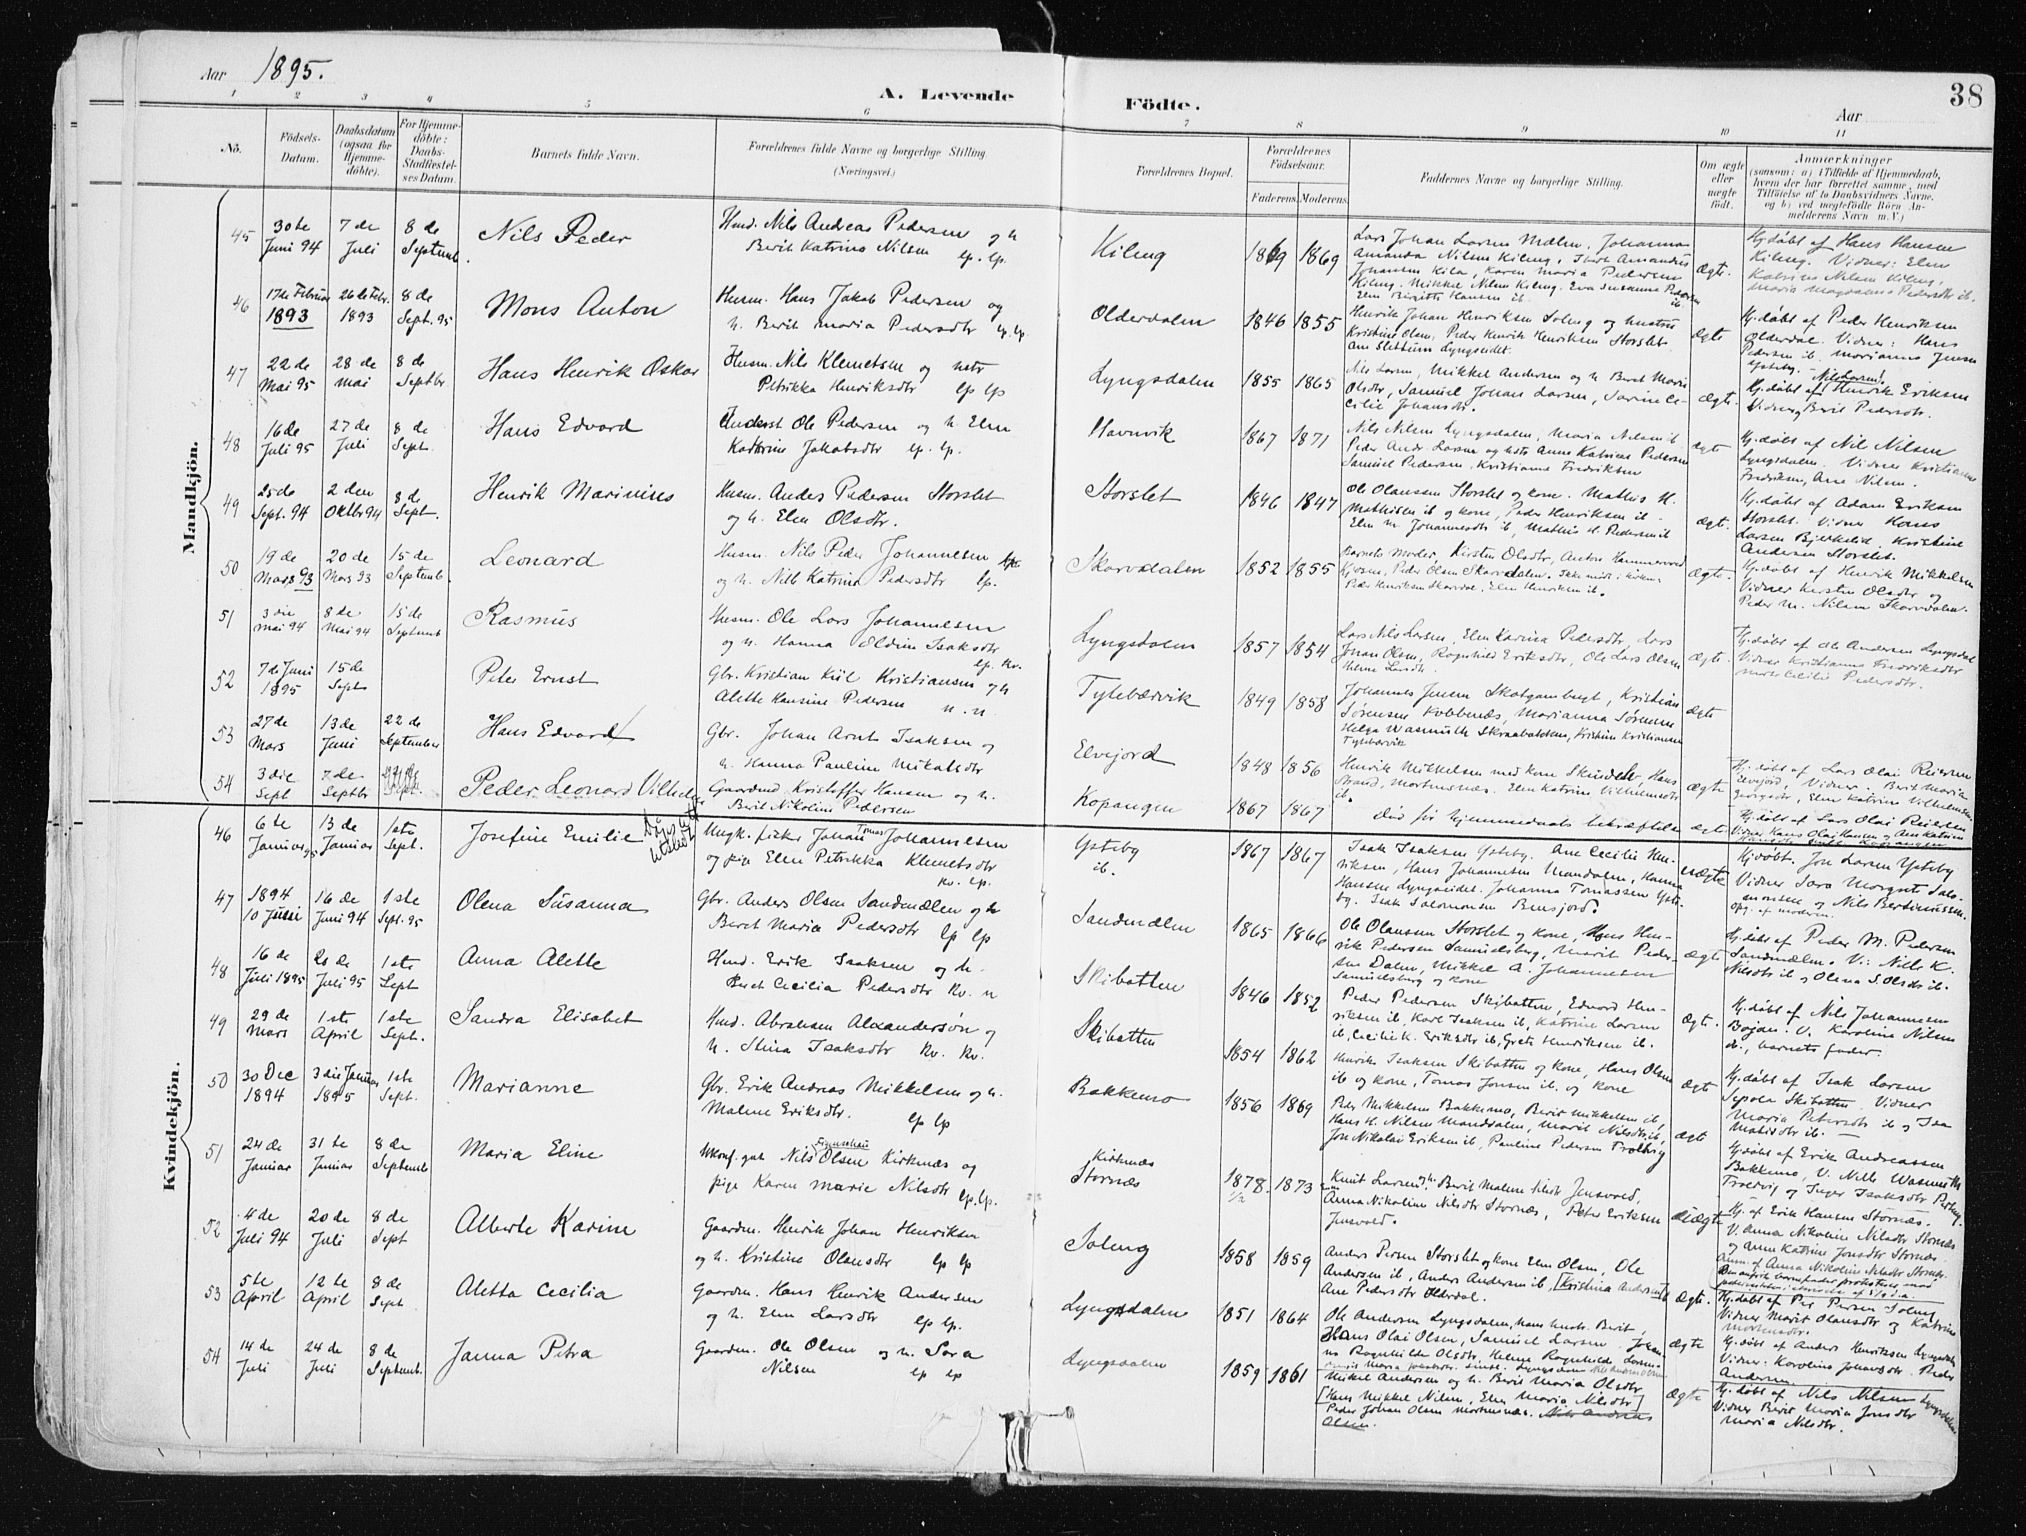 Aar 1895.
A. Levende Födte.
Aar
38
1 2 3 4 5 6 7 8 9 10 11
Nô.
Födsels-Datum.
Daabsdatum (ogsaa for Hjemmedöbte).
For Hjemmedöbte: Daabs-Stadfæstelses Datum.
Barnets fulde Navn.
Forældrenes fulde Navne og borgerlige Stilling (Næringsvei.)
Forældrenes Bopæl.
Forældrenes Födselsaar.
Faderens. Moderens.
Faddernes Navne og borgerlige Stilling.
Om ægte eller uægte födt.
Anmærkninger
(saasom: a) i Tilfælde af Hjemmedaab, hvem der har forrettet samme, med Tilföielse af to Daabsvidners Navne, og b) ved uegtefödte Börn Anmelderens Navn m. V.)
Mandkjön.
45 30te Juni 94 7de Juli 8de Septemb. Nils Peder
Husd. Nils Andreas Pedersen og h
Berit Katrine Nilsen lp. lp.
Kileng 1869 1869
Lars Johan Larsen Mælen, Johanna
Amanda Nilsen Kileng,
Johansen Kila, Karen Maria Pedersen
Kileng. Mikkel Nilsen Kileng. Eva Susanna Pedersen
Elen Birgitte Hansen ib.
ægte.
Hj.døbt af Hans Hansen
Kileng. Vidner: Elen
Katrine Nilsen Kileng,
Maria Magdalena Pedersdtr ib.
46 17de Februar 1893 26de Febr. 1893 8de Sept. 95 Mons Anton
Husm. Hans Jakob Pedersen og
h. Berit Maria Pedersdtr lp. lp.
Olderdalen 1846 1855
Henrik Johan Henriksen Soleng og hustru
Kristine Olsen, Peder Henrik Henriksen Storslet
Lyngseidet.
ægte
Hj.døbt af Peder Henriksen
Olderdal. Vidner: Hans
Pedersen ib, Marianna Jensen
Ysteby.
47 22de Mai 95 28de Mai 8de Septbr Hans Henrik Oskar
Husm. Nils Klemetsen og
Petrikka Henriksdtr lp lp
Lyngsdalen 1855 1865
Nils Larsen, Mikkel Andersen og h Berit Marie
Olsdtr, Samuel Johan Larsen, Sarine Ce-
cilie Johansdtr.
ægte.
Nils Larsen
Hj.døbt af Henrik Eriksen
Vidner Berit Pedersdtr.
48 16de Juli 95 27de Juli 8de Sept. Hans Edvard
Ole Pedersen og h. Elen
Kathrine Jakobsdtr lp. lp.
Havnvik 1867 1871
Nils Nilsen Lyngsdalen, Maria Nilsen ib.
Peder And. Larsen og Anne Katrine Pedersen
Samuel Pedersen, Kristianne Fredriksen
ægte
Hj.døbt af Nil Nilsen
Lyngsdalen. Vidner Kristianna
Fredriksen, Ane Nilsen.
49 25de Sept. 94 2den Oktbr 94 8de Sept. Henrik Marinius
Husm. Anders Pedersen Storslet
og h. Elen Olsdtr.
Storslet 1846 1847
Ole Olaussen Storslet og kone. Mathis H.
Mathisen ib og kone, Peder Henriksen ib.
Elen M. Johannesdtr ib, Mathis H. Pedersen ib
ægte.
Hj.døbt af Adam Eriksen
Storslet. Vidner Hans
Larsen Bjerkelid, Kristine
Andersen Storslet.
50 19de Mars 93 20de Mars 93 15de Septemb. Leonard
Husm. Nils Peder Johannesen
og h. Nille Katrina Pedersdtr lp.
Skarvdalen 1852 1855
Barnets Moder, Kirsten Olsdtr, Anton
Kjosen, Peder Olsen Skarvdalen.
Peder Henriksen Skarvdal, Elen Henriksen ib.
ægte.
Hj.døbt af Henrik Mikkelsen
Vidner Kirsten Olsdtr og
Peder M. Nilsen Skarvdalen.
51 3die Mai 94 8de Mai 94 15de Septemb Rasmus
Husm. Ole Lars Johannesen
og h. Hanna Eldine Isaksdtr
lp. kv.
Lyngsdalen 1857 1854
Lars Nils Larsen, Elen Karina Pedersdtr, Lars
Johan Olsen, Ragnhild Eriksdtr, Ole Lars Olsen
ægte
Hj.døbt af Ole Andersen Lyngsdal
Vidner Kristianna Fredriksdtr
Cecilie Pedersdtr.
52 7de Juni 1895 15de Septr Peter Ernst
Gbr. Kristian Kiil Kristiansen og h
Alette Hansine Pedersen n. n.
Tyttebærvik 1849 1858
Johannes Jensen Skatgamburgt, Kristian
Sørensen Kobbenæs, Marianna Sørensen
Helga Wasmuth Skraabakken, Kristine Kristiansen
Tyttebærvik
ægte
53 27de Mars 13de Juni 22de September Hans Edvard
Gbr. Johan Arnt Isaksen og
h. Hanna Pauline Nikolsdtr
Elvejord 1848 1856
Henrik Mikkelsen med kone Skindelv, Hans
Strand, Mortensnæs. Elen Katrine Vilhelmsdtr
ib.
ægte
Hj.døbt af Lars Olai Reiersen
Elvejord, Vidner: Berit Maria
Georgsdtr, Elen Katrine Vilhelmsen
54 3die Sept 7de Septbr Peder Leonard Vilhelm
Gaardmd. Kristoffer Hansen og h.
Berit Nikoline Pedersen
Kopangen 1867 1867
død før hjemmedaabs bekræftelse
ægte
Hj.døbt af Lars Olai Reiersen
Vidner Hans Olai Hansen og
Kopangen
Kvindekjön.
46 6te Januar 95 13de Januar 1ste Sept. Josefine Emilie
Ungk. fisker Johan Tomas Johannesen
og pige Elen Petrikka Klemetsdtr
kv. lp.
Ysteby ib. 1867 1867
Isak Isaksen Ysteby. Ane Cecilie Hen-
riksen, Hans Johannesen Mandalen, Hanna
Hansen Lyngseidet. Johanna Tomassen Yste-
by. Isak Salomonsen Bensjord.
uægte
Hj.døbt. Jon Larsen Ysteby
Vidner Sara Margret Salo-
monsen og Nils Bertinussen.
opg. af moderen.
47 1894 10 Juni 16de Juni 94 1ste Sept. 95 Olena Susanna
Gbr. Anders Olsen Sandmælen og h
Beret Maria Pedersdtr lp lp
Sandmælen 1865 1866
Ole Olaussen Storslet og kone, Hans Hen-
rik Pedersen Samuelsberg, Marit Peder-
sen Dalen, Mikkel A. Johannesen
Samuelsberg og kone
ægte
Hj.døbt af Peder M. Pedersen
Sandmælen. V: Nille K.
Nilsdtr ib og Olena S. Olsdtr ib.
48 16de Juli 1895 21de Juli 95 1ste Sept Anna Alette
Husd. Erik Isaksen og h.
Berit Cecilia Pedersdtr kv. n
Skibotten 1846 1852
Peder Pedersen Skibotten, Edvard Hen-
riksen ib, Karl Isaksen ib, Katrine Larsen
ib, Cecilie K. Eriksdtr ib, Grete Henriksen ib.
ægte.
Hj.døbt af Nils Johannesen
Bojan. V. Karoline Nilsen
ib., barnets fader.
49 29de Mars 1ste April 1ste Sept. Sandra Elisabet
Husd. Abraham Alexandersøn og
h. Stina Isaksdtr kv. kv.
Skibotten 1854 1862
Henrik Isaksen Skibotten og kone, Hans Olsen
ib og kone, Tomas Jonsen ib. og kone
ægte
Hj.døbt af Isak Larsen
Sepola Skibotten. Vidner
Maria Petersdtr ib og Isa
Matisdtr ib.
50 30 Dec 1894 3die Januar 1895 1ste Sept. Marianne
Gbr. Erik Andreas Mikkelsen og h.
Malene Eriksdtr. lp lp
Bakkemo 1856 1869
Peder Mikkelsen Bakkemo, Berit Mikkelsen ib,
Hans H. Nilsen Manddalen, Marit Nilsdtr ib,
Jon Nikolai Eriksen ib, Pauline Pedersen Trollvig
ægte
Hj.døbt af Erik Andreassen
Bakkemo, V. Nille Wasmuth
Trollvig og Inger Isaksdtr
51 24de Januar 31te Januar 8de Septemb Maria Eline
Ukonf. gut Nils Olsen Kirknæs og
pige Karen Marie Nilsdtr lp. lp.
Kirknæs
Stornæs 1878. 1873
Knut Larsen, h. Berit Malene Jensvold,
Anna Nikoline Nilsdtr Stornæs, Peter Eriksen
Jensvold.
uægte
Hj. af Erik Hansen Stornæs.
V. Anna Nikoline Nilsdtr Stornæs
og Anne Katrine Jonsdtr Stornæs.
Anm. af Anna Nikoline Nilsdtr Stornæs.
52 4de Juli 94 20de Juli 8de Sept Alberte Karine
Gaardm. Henrik Johan Henriksen
og h. Kristine Olausdtr lp lp
Soleng 1858 1859
Anders Persen Storslet og kone Elen Olsen, Ole
Andersen ib, Anders Andersen ib, Kristina Andersen,
Ane Pedersdtr Olderdal.
ægte.
Hj.døbt af Per Persen Soleng
Vidner Marit Olausdtr og Katrine
Mortensdtr.
53 5te April 12te April 8de Sept Aletta Cecilia
Gaardm. Hans Henrik Andersen
og h. Elen Larsdtr lp lp.
Lyngsdalen 1851 1864
Ole Andersen Lyngsdalen, hans hustr. Berit,
Hans Olai Olsen, Samuel Larsen, Johan-
na Ragnhilde Olsdtr, Helene Ragnhilde Larsen.
ægte
Hj.døbt af Anders Henriksen Lyngsdal
Vidner: Karoline Johansdtr, Peder
Andersen.
54 14de Juli 24de Juli 8de Septemb. Janna Petra
Gaardm. Ole Olsen og h. Sara
Nilsen lp lp
Lyngsdalen 1859 1861
Mikkel Andersen og h. Berit Maria Olsdtr
[Hans Mikkel Nilsen, Elen Maria Nilsdtr]
Peder Johan Olsen Mortensnæs. Nils Andreas
Olsen.
ægte
Hj.døbt af Nils Nilsen Lyngsdalen
Vidner Berit Maria Jonsdtr
Maria Nilsdtr.